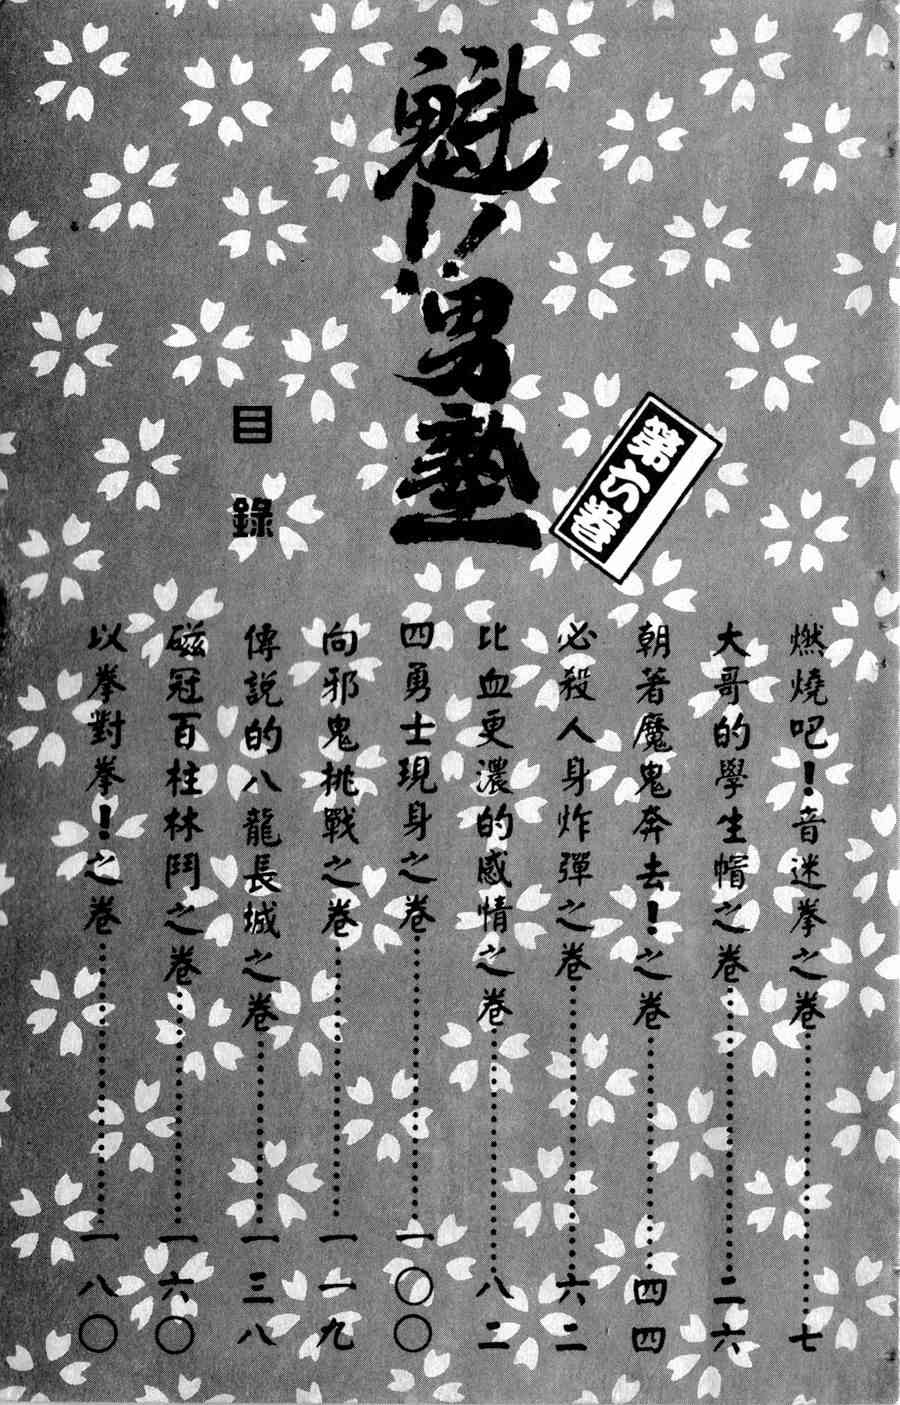 魁!!男塾
第六卷
目錄
燃燒吧!音迷拳之卷……七
大哥的學生帽之卷……二六
朝著魔鬼奔去!之卷……四四
必殺人身炸彈之卷……六二
比血更濃的感情之卷……八二
四勇士現身之卷……一〇〇
向邪鬼挑戰之卷……一一九
傳說的八龍長城之卷……一三八
磁冠百柱林鬥之卷……一六〇
以拳對拳!之卷……一八〇